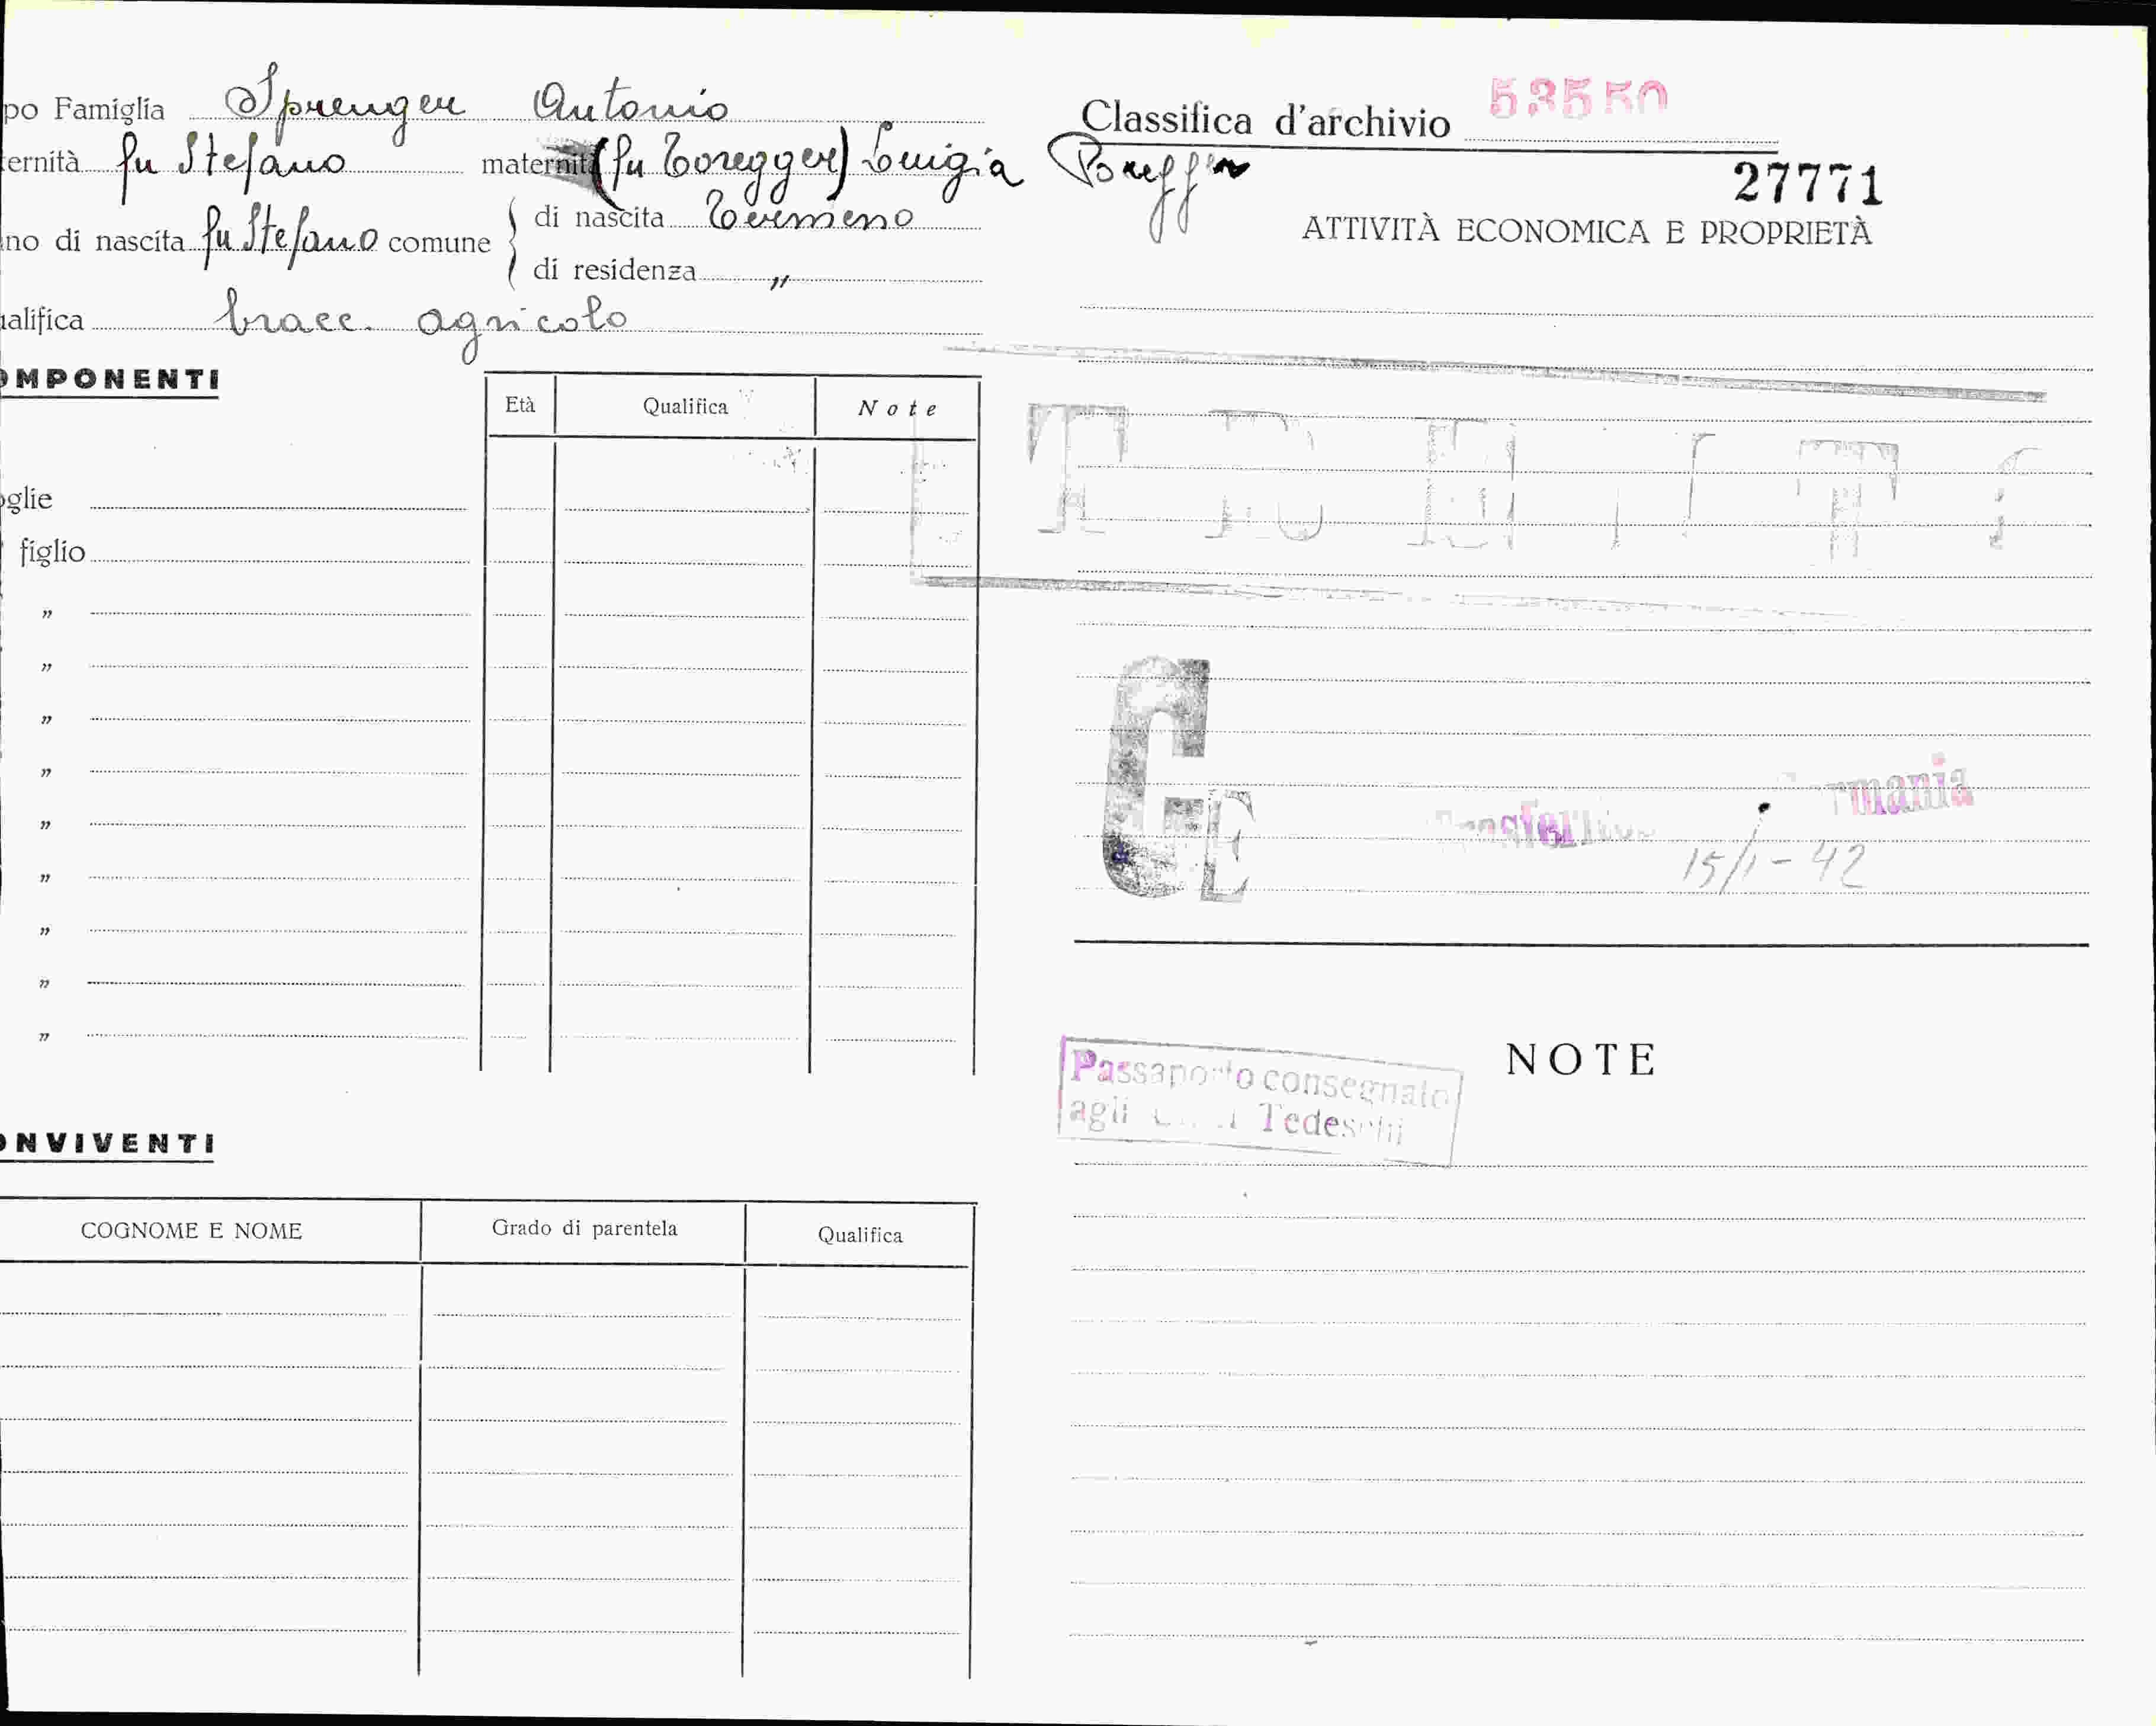 po Famiglia Sprenger Antonio
ernità fu Stefano maternità (fu Toregger) Luigia
no di nascita fu Stefano comune
di nascita Termeno
di residenza "
alifica bracc. agricolo
OMPONENTI
Età Qualifica Note
oglie
figlio
"
"
"
"
"
"
"
"
"
ONVIVENTI
COGNOME E NOME Grado di parentela Qualifica
Classifica d'archivio 53550
27771
ATTIVITÀ ECONOMICA E PROPRIETÀ
GE
rmania
15/1-42
NOTE
Passaporto consegnato
agli Tedeschi